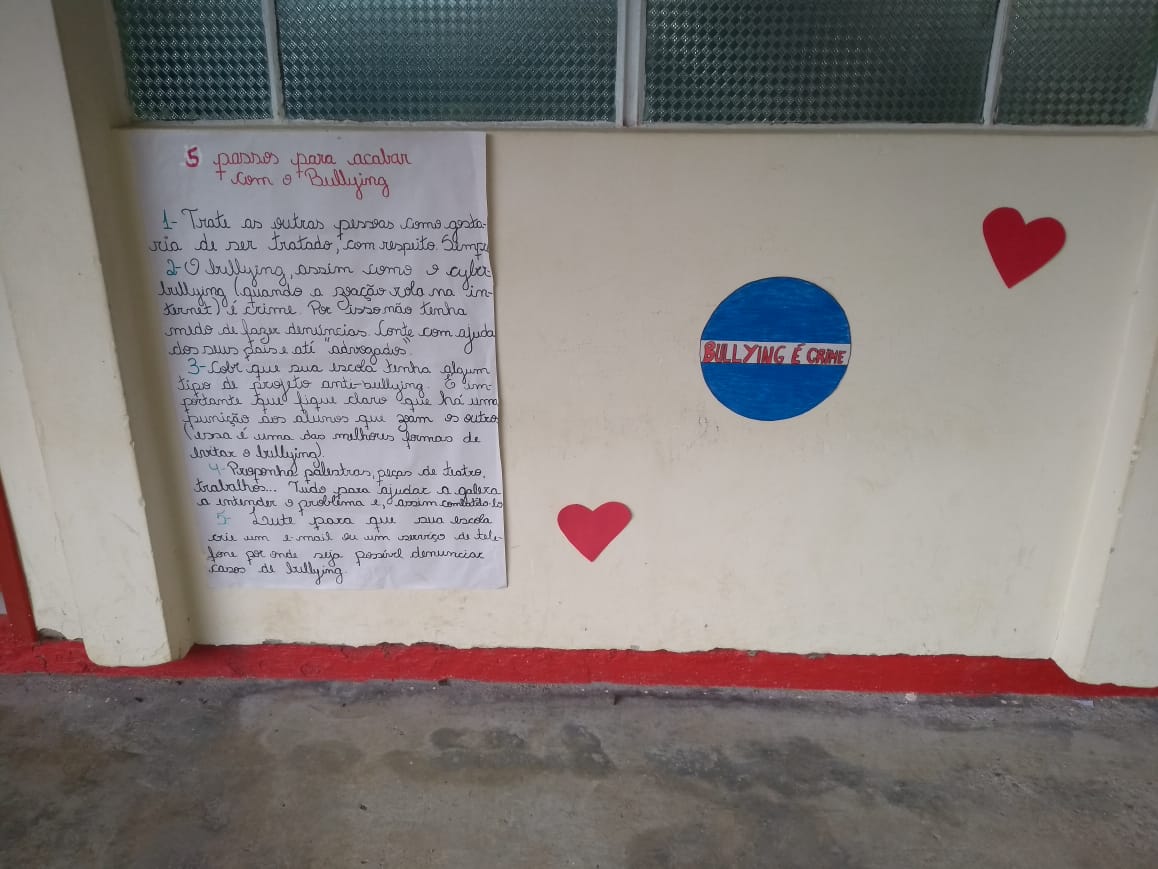 5 passos para acabar
com o Bullying
1- Trate as outras pessoas como gosta-
ria de ser tratado, com respeito. Sempr
2- O bullying, assim como o cyber-
bullying (quando a zoação rola na in-
ternet) é crime. Por isso não tenha
medo de fazer denúncias. Conte com ajuda
dos seus pais e até "advogados".
3- Cobr que sua escola tenha algum
tipo de projeto anti-bullying. É im-
portante que fique claro que há uma
punição aos alunos que zoam os outros
(essa é uma das melhores formas de
evitar o bullying).
4- Proponha palestras, peças de teatro,
trabalhos... Tudo para ajudar a galera
a intender o problema e, assim combatê-lo
5- Laute para que sua escola
crie um e-mail ou um serviço de tele-
fone por onde seja possível denunciar
casos de bullying.
BULLYING É CRIME